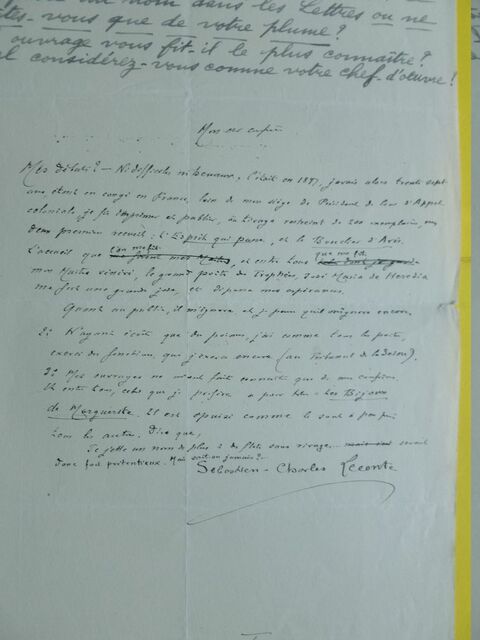 nom dans les Lettres ou ne
tes-vous que de votre plume?
ouvrage vous fit-il le plus connaître?
l considérez-vous comme votre chef-d'œuvre!
Mon cher confrère
Mes débuts? — Ni difficiles ni heureux, c'était en 1897, j'avais alors trente sept
ans, étant en congé en France, loin de mon siège de Président de Cour d'Appel
coloniale, je fis imprimer et publier, à tirage restreint de 200 exemplaires, mes
deux premiers recueils: l'Esprit qui passe, et le Bouclier d'Arès.
L'accueil que et entre tous que me fit
mon Maître vénéré, le grand poète des Trophées, José Maria de Heredia
me fut une grande joie, et dépassa mes espérances.
Quant au public, il m'ignora et je pense qu'il m'ignore encore.
2: N'ayant écrit que des poèmes, j'ai comme tous les poètes,
exercé des fonctions, que j'exerce encore (au Tribunal de la Seine).
3: Mes ouvrages ne m'ont fait connaître que de mes confrères.
Et entre tous, celui que je préfère a pour titre – Les Bijoux
de Marguerite. Il est épuisé comme le sont à peu près
tous les autres. Dire que,
Je jette un nom de plus à des flots sans rivage serait
donc fort prétentieux. Mais sait-on jamais?..
Sébastien-Charles Leconte